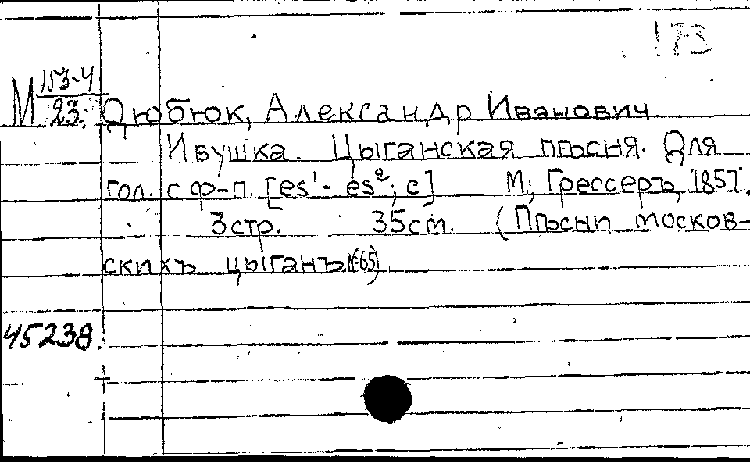 173
М 153-4/23. Дюбюк, Александр Иванович
Ивушка. Цыганская пѣсня. Для
гол. с ф-п. [es¹- es²; c] М; Грессеръ, 1857.
3стр. 35см. (Пѣсни москов-
скихъ цыганъ №65)
45238.